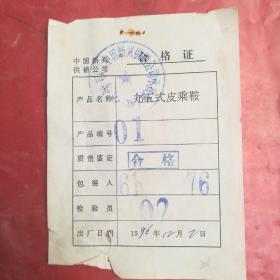 合格证
中国新兴
供销公司
产品名称 九五式皮乘鞍
产品编号 01
质量鉴定 合格
包装人 76
检验员 02
出厂日期 1996年12月2日